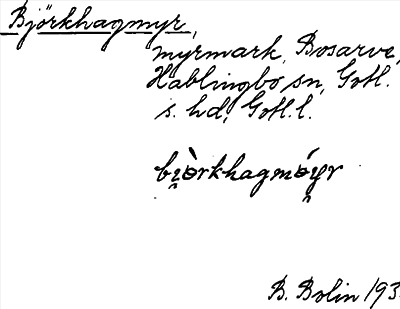 Björkhagmyr,
myrmark, Bosarve,
Hablingbo sn, Gotl.
s. hd, Gotl. l.
bi̯òrkhagmǿy̯r
B. Bolin 193